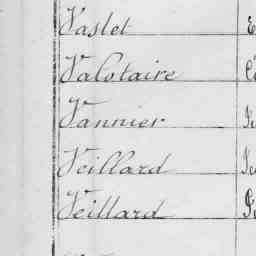 Vaslet
Valotaire
Vannier
Veillard
Veillard